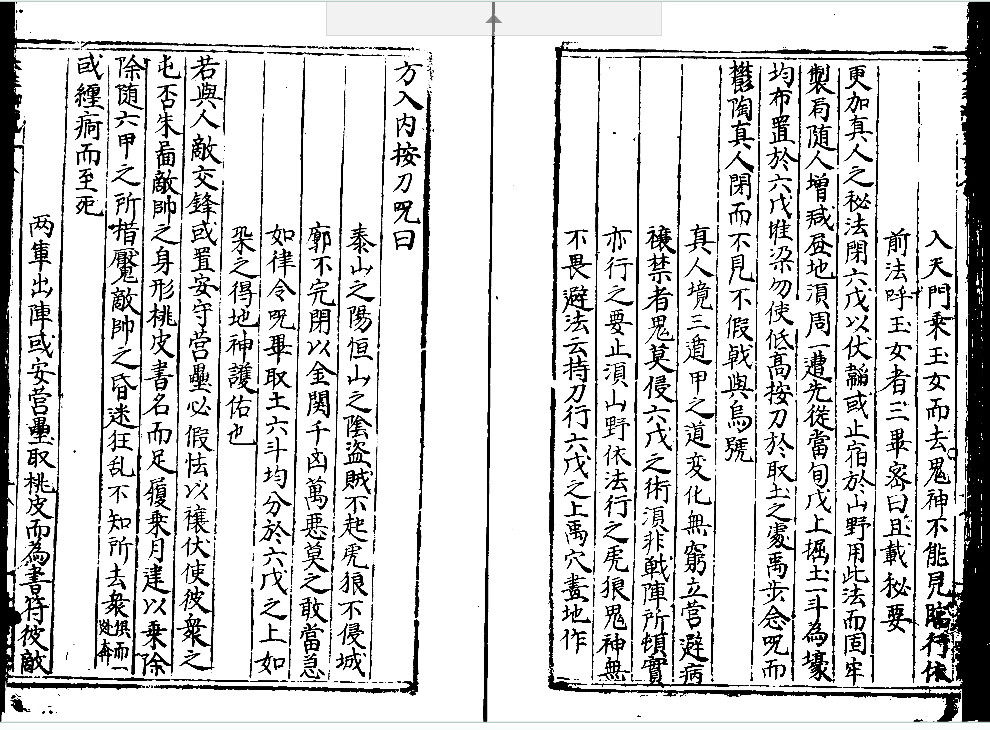 入天門乘玉女而去鬼神不能見臨行依
前法呼玉女者三畢密曰且載秘要
更加真人之秘法閉六戊以伏韜或止宿於山野用此法而固牢
製局隨人增減晷地湏周一遭先從當旬戊上掘土一斗為壕
均布置於六戊惟梁勿使低高按刀於取土之處禹步念呪而
鬱陶真人閉而不見不假戟與烏號
真人境三遁甲之道变化無窮立营避病
禳禁者鬼莫侵六戊之術湏非戰陣所頓實
亦行之要止湏山野依法行之虎狼鬼神無
不畏避法云持刀行六戊之上禹穴畫地作
方入内按刀呪曰
泰山之陽恒山之陰盗賊不起虎狼不侵城
廓不完閉以金関千凶萬惡莫之敢當急
如律令呪畢取土六斗均分於六戊之上如
染之得地神護佑也
若與人敵交鋒或置安守营壘必假怯以禳伏使彼衆之
屯否朱啚敵帥之身形桃皮書名而足履乘月建以乘除
除随六甲之所措魘敵帥之昏迷狂乱不知所去衆惧而一
跷奔
或纏痾而至死
两軍出陣或安营壘取桃皮而為書符彼敵